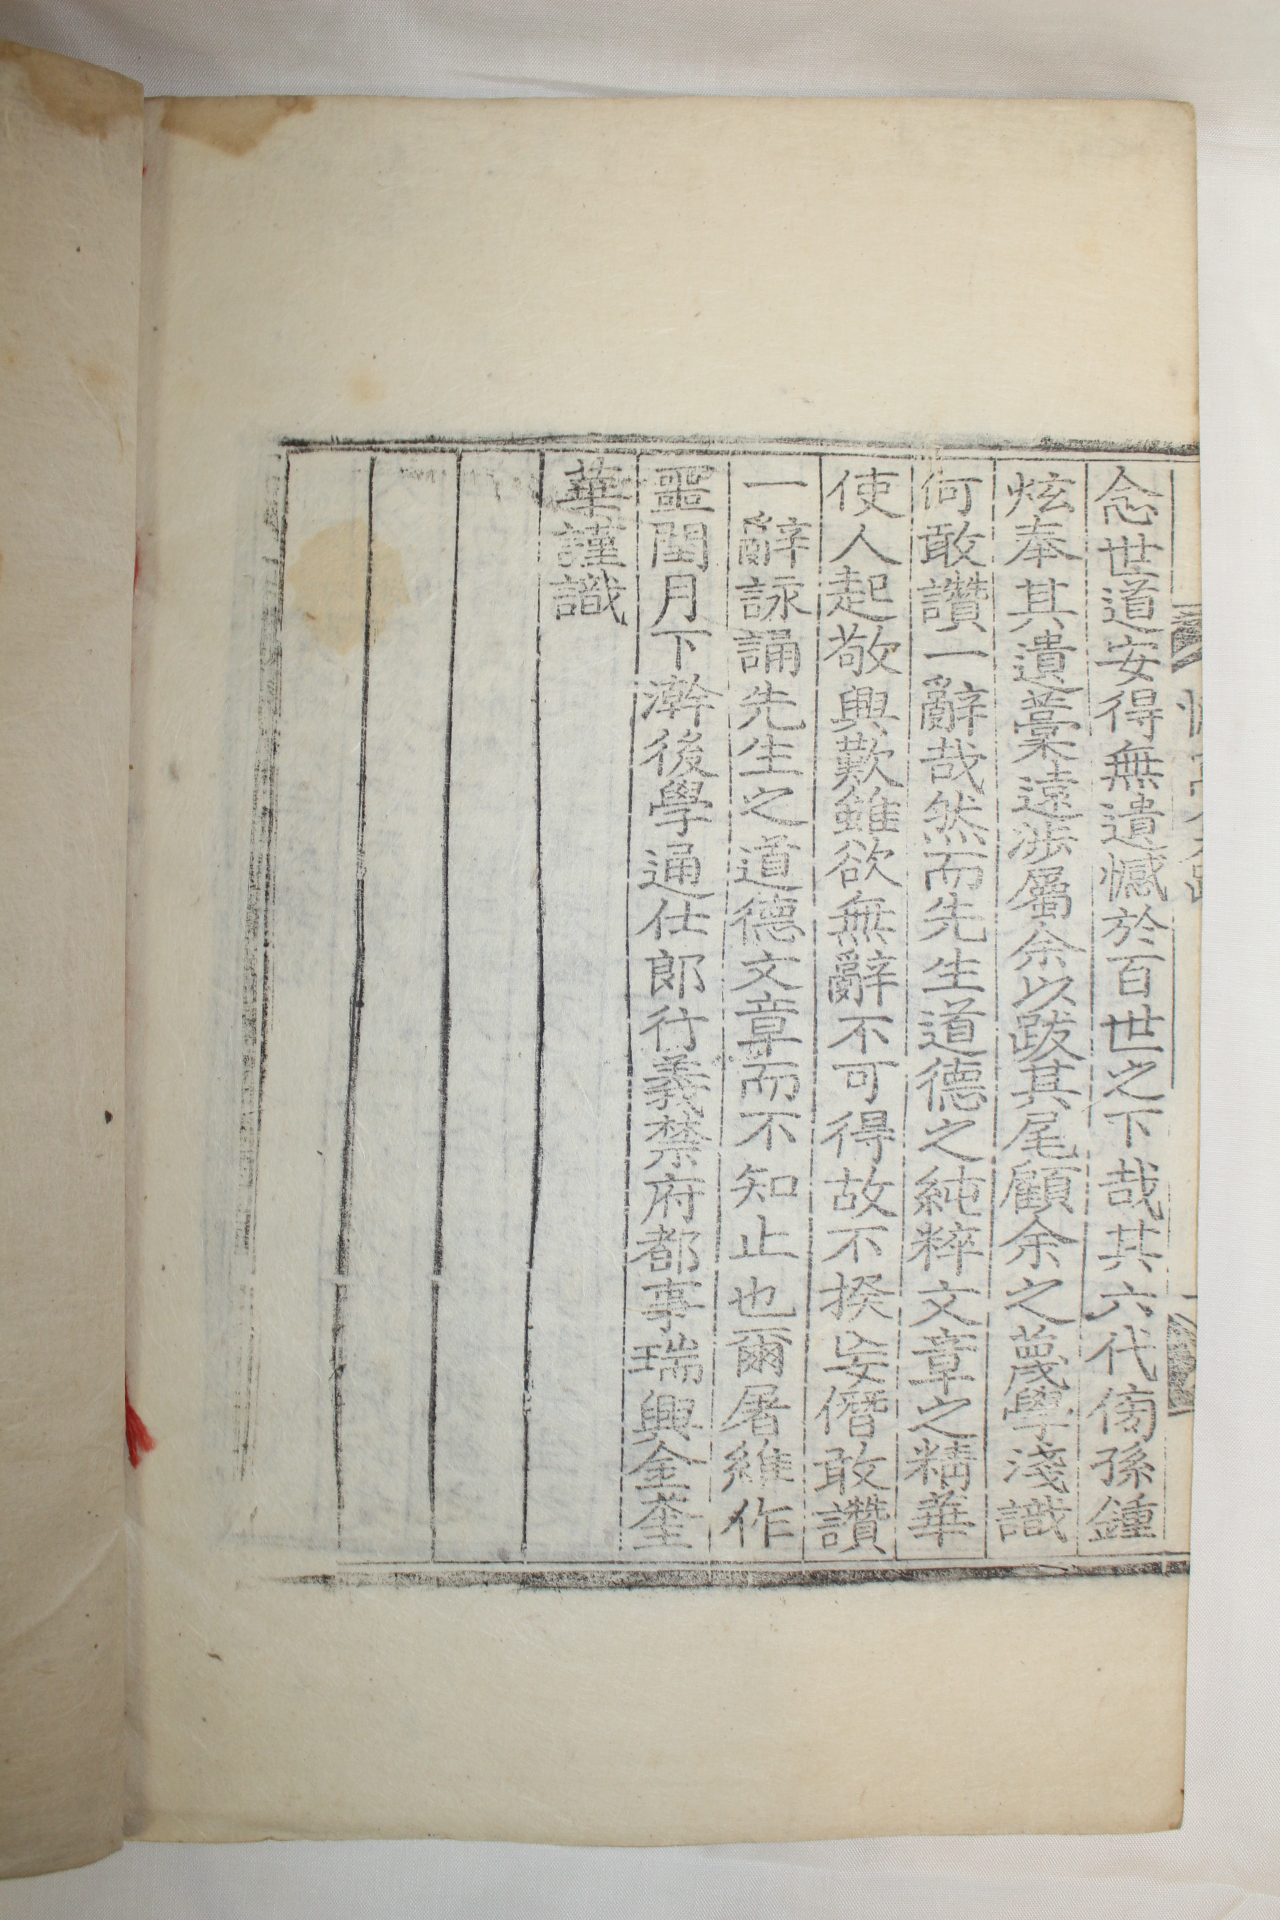 念世道安得無遺憾於百世之下哉其六代傍孫鍾
炫奉其遺藁遠涉屬余以跋其尾顧余之蔑學淺識
何敢讚一辭哉然而先生道德之純粹文章之精華
使人起敬興歎雖欲無辭不可得故不揆妄僭敢讚
一辭詠誦先生之道德文章而不知止也爾屠維作
噩閏月下澣後學通仕郎行義禁府都事瑞興金奎
華謹識